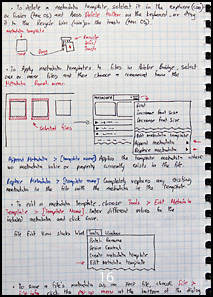 · To delete a metadata template, select it in the Explorer (win)
or Finder (mac OS) and Press Delete button on the keyboard, or drag
it to the Recycle Bin (win) or the Trash (mac OS).
metadata template
Recycle
Bin/
Trash
· To Apply metadata templates to files in Adobe Bridge, select
one or more files and then choose a command from the
Metadata Panel menu.
METADATA
Find
Increase Font Size
Decrease Font Size
Edit metadata template
Append metadata
Replace metadata
Selected files
Append Metadata > [Template name] Applies the template metadata where
no metadata value or property currently exists in the file.
Replace Metadata > [Template name] Completely replaces any existing
metadata in the file with the metadata in the template.
· To edit a metadata template, choose Tools > Edit Metadata
Template > [Template Name]. Enter different values for the
included metadata and click Save.
File Edit View Stacks Label Tools Window
Batch Rename
Create Metadata template
Edit Metadata template
16
· To save a file's metadata as an XMP file, choose File >
File click the pop up menu at the bottom of the dialog